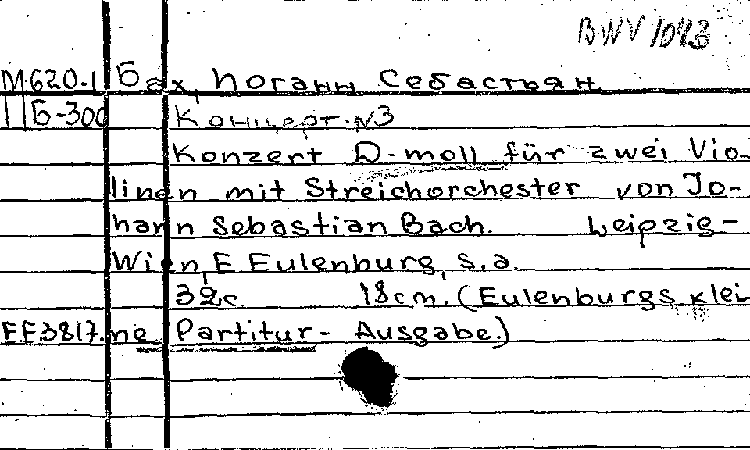 BWV 1043
М620.1 Бах, Йоганн Себастьян
ПБ-300 Концерт. №3
Konzert D-moll für zwei Vio-
linen mit Streichorchester von Jo-
hann Sebastian Bach. Leipzig-
Wien, E Eulenburg, s.a.
32с. 18cm. (Eulenburgs klei
EE3817. ne Partitur- Ausgabe.)